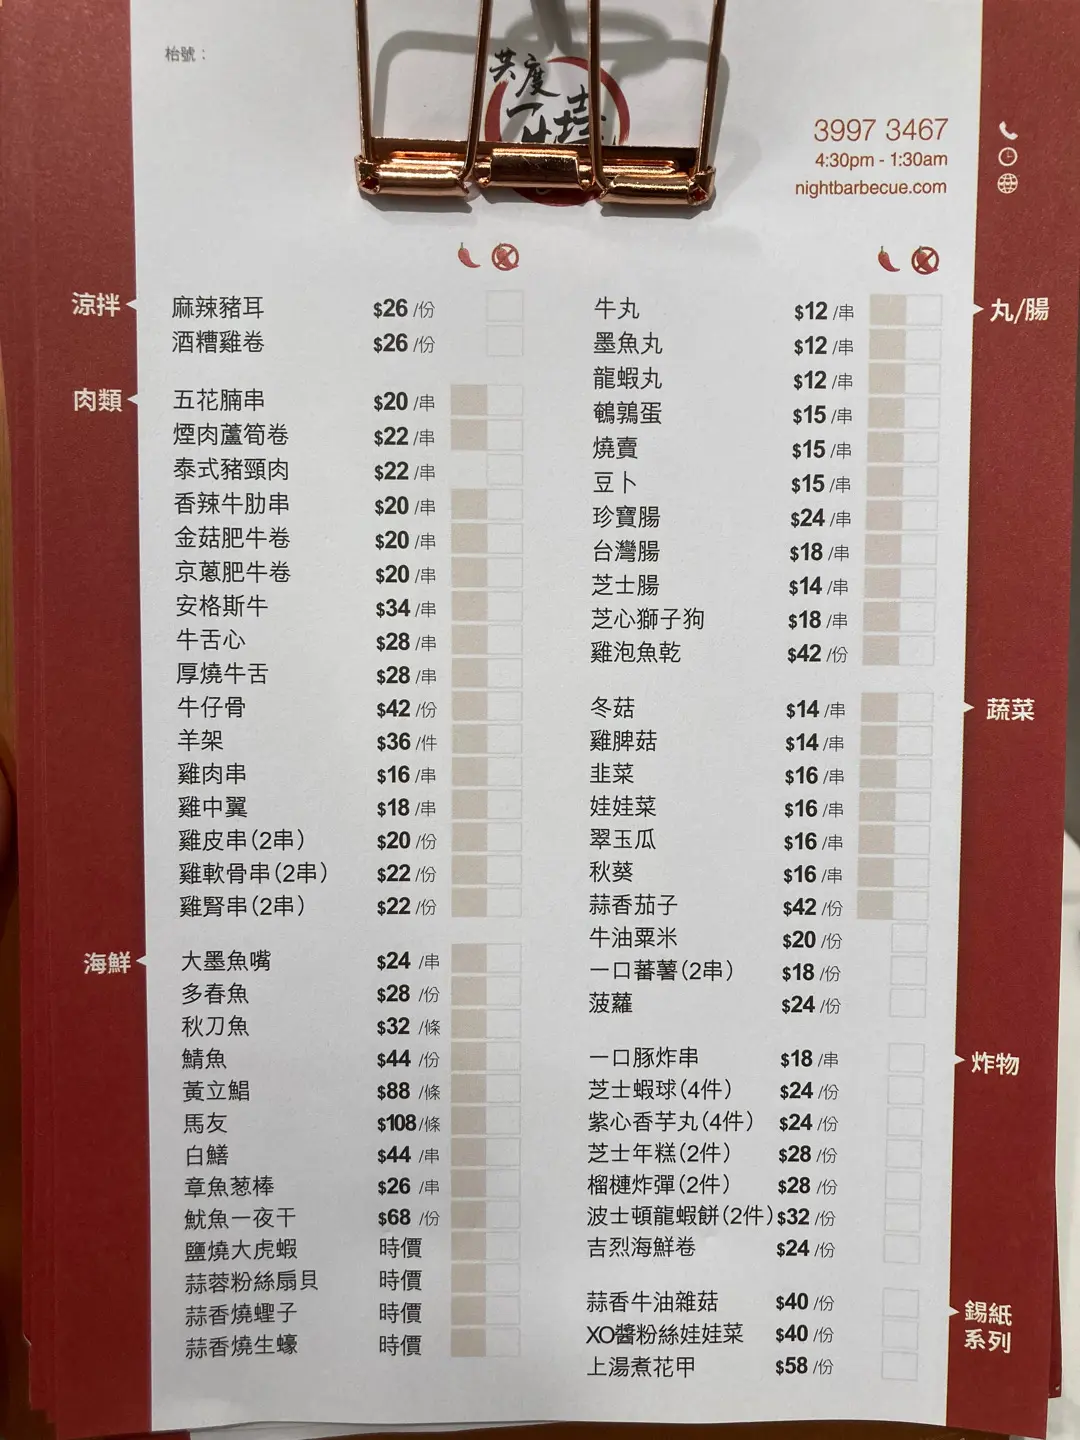 枱號：
共度
3997 3467
4:30pm - 1:30am
nightbarbecue.com
涼拌
麻辣豬耳 $26 /份
酒糟雞卷 $26 /份
肉類
五花腩串 $20 /串
煙肉蘆筍卷 $22 /串
泰式豬頸肉 $22 /串
香辣牛肋串 $20 /串
金菇肥牛卷 $20 /串
京蔥肥牛卷 $20 /串
安格斯牛 $34 /串
牛舌心 $28 /串
厚燒牛舌 $28 /串
牛仔骨 $42 /份
羊架 $36 /件
雞肉串 $16 /串
雞中翼 $18 /串
雞皮串(2串) $20 /份
雞軟骨串(2串) $22 /份
雞腎串(2串) $22 /份
海鮮
大墨魚嘴 $24 /串
多春魚 $28 /份
秋刀魚 $32 /條
鯖魚 $44 /份
黃立鯧 $88 /條
馬友 $108 /條
白鱔 $44 /串
章魚葱棒 $26 /串
魷魚一夜干 $68 /份
鹽燒大虎蝦 時價
蒜蓉粉絲扇貝 時價
蒜香燒蟶子 時價
蒜香燒生蠔 時價
丸/腸
牛丸 $12 /串
墨魚丸 $12 /串
龍蝦丸 $12 /串
鵪鶉蛋 $15 /串
燒賣 $15 /串
豆卜 $15 /串
珍寶腸 $24 /串
台灣腸 $18 /串
芝士腸 $14 /串
芝心獅子狗 $18 /串
雞泡魚乾 $42 /份
蔬菜
冬菇 $14 /串
雞脾菇 $14 /串
韭菜 $16 /串
娃娃菜 $16 /串
翠玉瓜 $16 /串
秋葵 $16 /串
蒜香茄子 $42 /份
牛油粟米 $20 /份
一口蕃薯(2串) $18 /份
菠蘿 $24 /份
炸物
一口豚炸串 $18 /串
芝士蝦球(4件) $24 /份
紫心香芋丸(4件) $24 /份
芝士年糕(2件) $28 /份
榴槤炸彈(2件) $28 /份
波士頓龍蝦餅(2件) $32 /份
吉烈海鮮卷 $24 /份
錫紙
系列
蒜香牛油雜菇 $40 /份
XO醬粉絲娃娃菜 $40 /份
上湯煮花甲 $58 /份